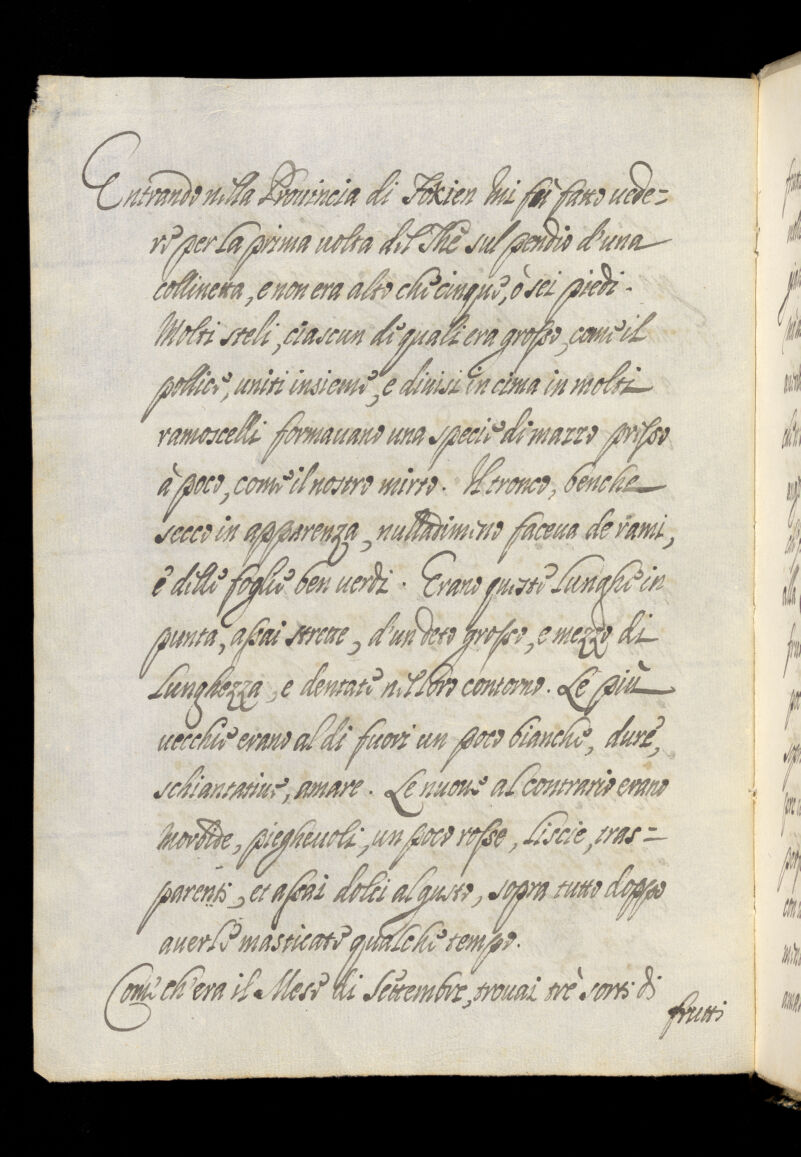 Entrando nella Prouincia di Fokien mi fù fatto uede=
re per la prima uolta del Thè sul pendio d'una
collinetta, e non era alto che cinque, ò sei piedi.
Molti steli, ciascun de quali era grosso, come il
pollice, uniti insieme, e diuisi in cima in molti
ramoscelli formauano una specie di mazzo presso
à poco, come il nostro mirto. Il tronco, benche
secco in apparenza, nulladimeno faceua de rami,
e delle foglie ben uerdi. Erano queste lunghe in
punta, assai strette, d'un deto grosso, e mezzo di
lunghezza, e dentate nel loro contorno. Le più
uecchie erano al di fuori un poco bianche, dure,
schiantatiue, amare. Le nuoue al contrario erano
morbide, pieghevoli, un poco rosse, liscie, tras=
parenti, et assai dolci al gusto, sopra tutto doppo
auerle masticate qualche tempo.
Come ch'era il Mese di Settembre, trouai trè sorti di
frutti